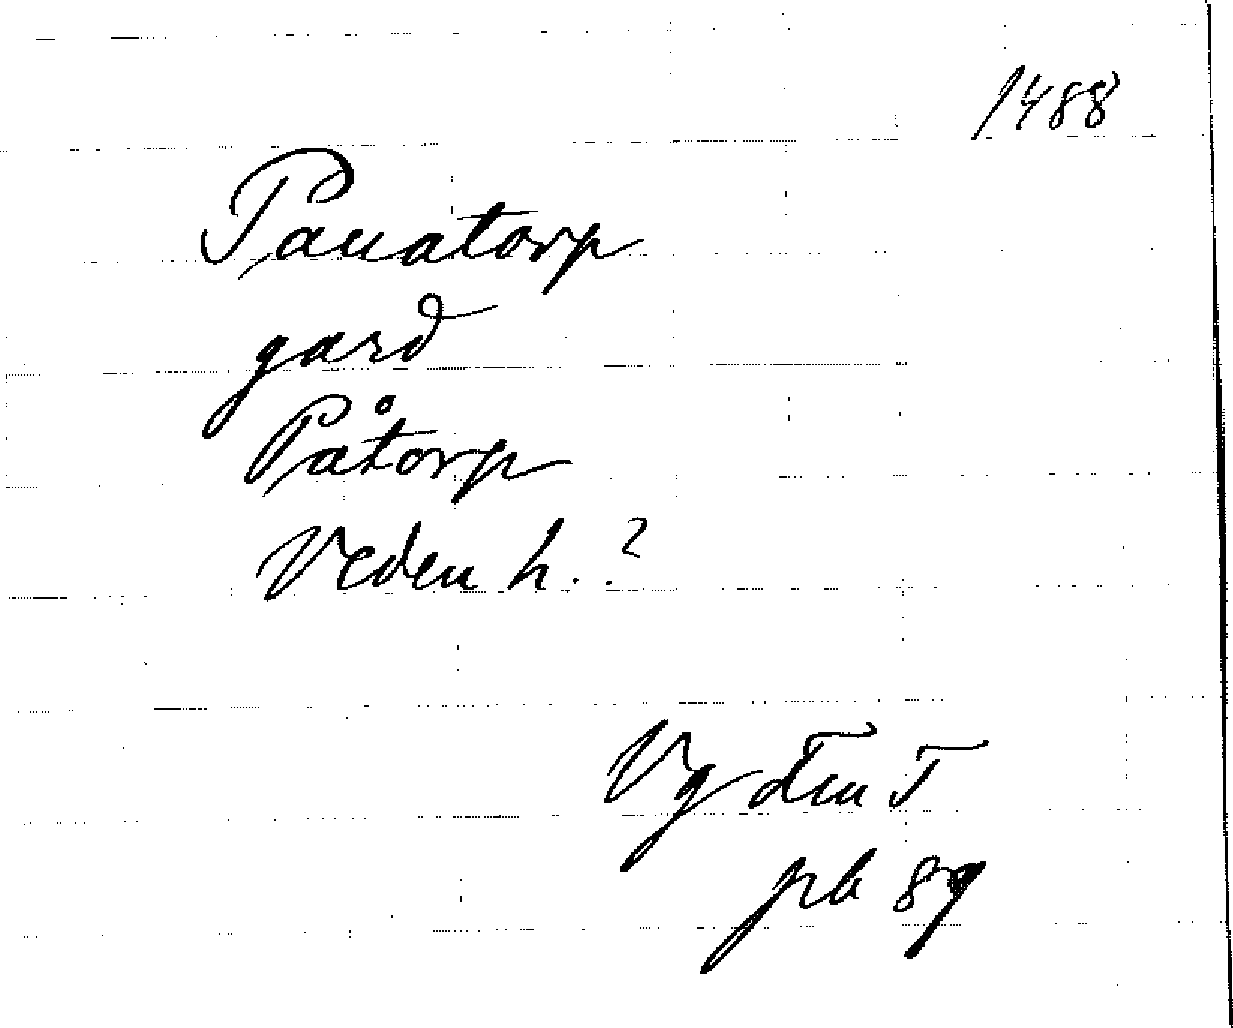 1488
Panatorp
gard
Påtorp
Veden h. ?
Vg
pb 89